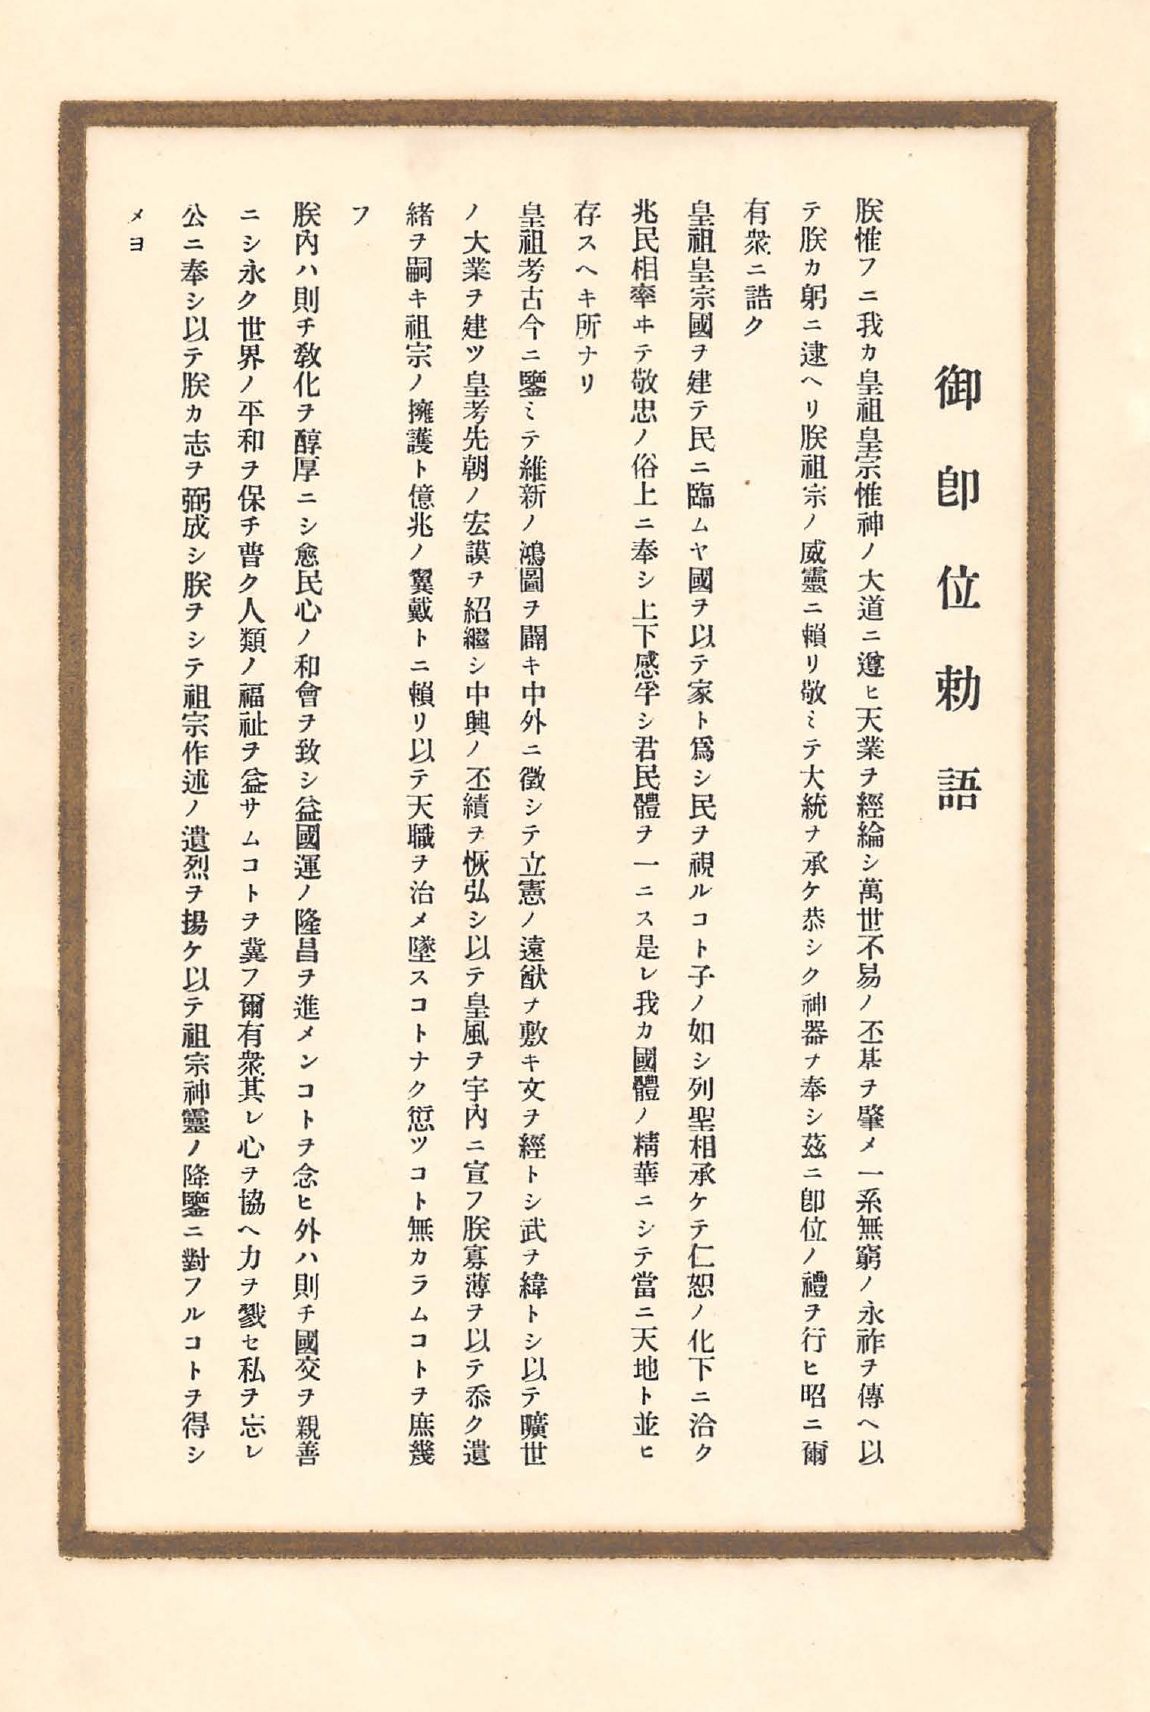 御卽位勅語
朕惟フニ我カ皇祖皇宗惟神ノ大道ニ遵ヒ天業ヲ經綸シ萬世不易ノ丕基ヲ肇メ一系無窮ノ永祚ヲ傳ヘ以
テ朕カ躬ニ逮ヘリ朕祖宗ノ威靈ニ賴リ敬ミテ大統ヲ承ケ恭シク神器ヲ奉シ茲ニ卽位ノ禮ヲ行ヒ昭ニ爾
有衆ニ誥ク
皇祖皇宗國ヲ建テ民ニ臨ムヤ國ヲ以テ家ト爲シ民ヲ視ルコト子ノ如シ列聖相承ケテ仁恕ノ化下ニ洽ク
兆民相率ヰテ敬忠ノ俗上ニ奉シ上下感孚シ君民體ヲ一ニス是レ我カ國體ノ精華ニシテ當ニ天地ト並ヒ
存スヘキ所ナリ
皇祖考古今ニ鑒ミテ維新ノ鴻圖ヲ闢キ中外ニ徵シテ立憲ノ遠猷ヲ敷キ文ヲ經トシ武ヲ緯トシ以テ曠世
ノ大業ヲ建ツ皇考先朝ノ宏謨ヲ紹繼シ中興ノ丕績ヲ恢弘シ以テ皇風ヲ宇內ニ宣フ朕寡薄ヲ以テ忝ク遺
緖ヲ嗣キ祖宗ノ擁護ト億兆ノ翼戴トニ賴リ以テ天職ヲ治メ墜スコトナク愆ツコト無カラムコトヲ庶幾
フ
朕內ハ則チ敎化ヲ醇厚ニシ愈民心ノ和會ヲ致シ益國運ノ隆昌ヲ進メンコトヲ念ヒ外ハ則チ國交ヲ親善
ニシ永ク世界ノ平和ヲ保チ普ク人類ノ福祉ヲ益サムコトヲ冀フ爾有衆其レ心ヲ協ヘ力ヲ戮セ私ヲ忘レ
公ニ奉シ以テ朕カ志ヲ弼成シ朕ヲシテ祖宗作述ノ遺烈ヲ揚ケ以テ祖宗神靈ノ降鑒ニ對フルコトヲ得シ
メヨ